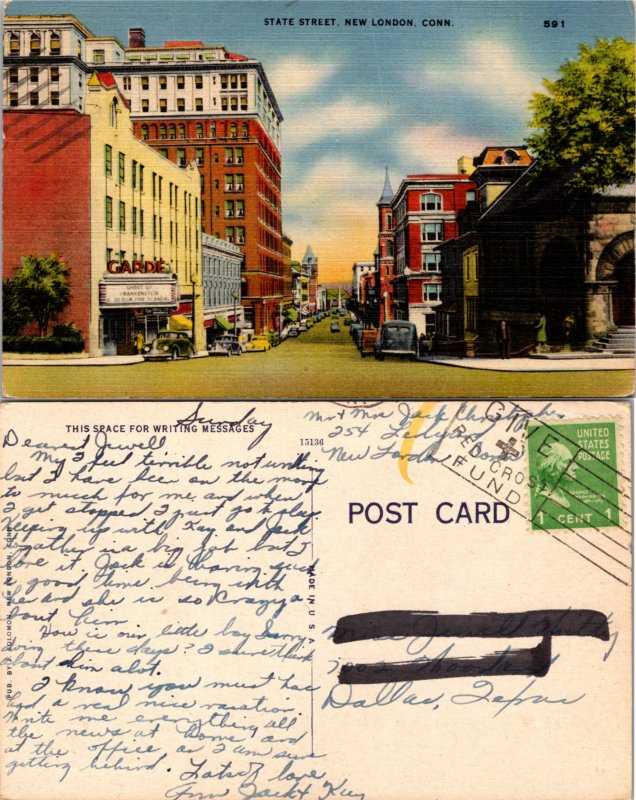 STATE STREET, NEW LONDON, CONN.
591
GARDE
GHOST OF
FRANKENSTEIN
DESIGN FOR SCANDAL
Sunday
THIS SPACE FOR WRITING MESSAGES
15136
Dearest Jewell
My I feel terrible not writing
but I have been on the move
to much for me and when
I get stopped I just go to
Keeping up with Kay and Jack
together is a big job but I
love it. Jack is having such
a good time being with
her and she is so crazy
bout him
How is our little boy
doing these days? I sure think
about him alot.
I know you must have
had a real nice vacation
Write me everything all
the news at home and
at the office, as I am sure
getting behind.
Lots of love
Jack & Kay
PUB. BY SOLOMON, NEW LONDON, CONN.
MADE IN U S A
Mr & Mrs Jack Christopher
254
New London
GIVE
RED CROSS
FUND
POST CARD
UNITED
STATES
POSTAGE
GEORGE
WASHINGTON
1 CENT 1
Dallas, Texas